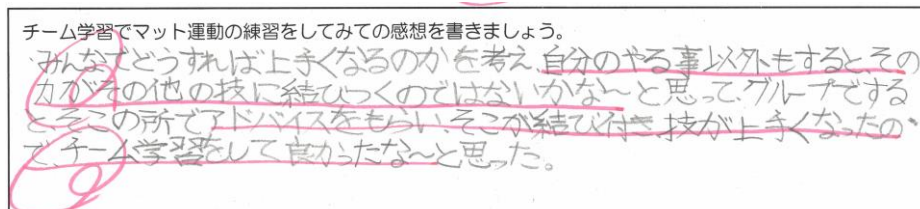 チーム学習でマット運動の練習をしてみての感想を書きましょう。
・みんなでどうすれば上手くなるのかを考え自分のやる事以外もすると、その
力がその他の技に結びつくのではないかな〜と思って、グループでする
と、そこの所でアドバイスをもらい、そこが結び付き技が上手くなったの
で、チーム学習をして良かったな〜と思った。